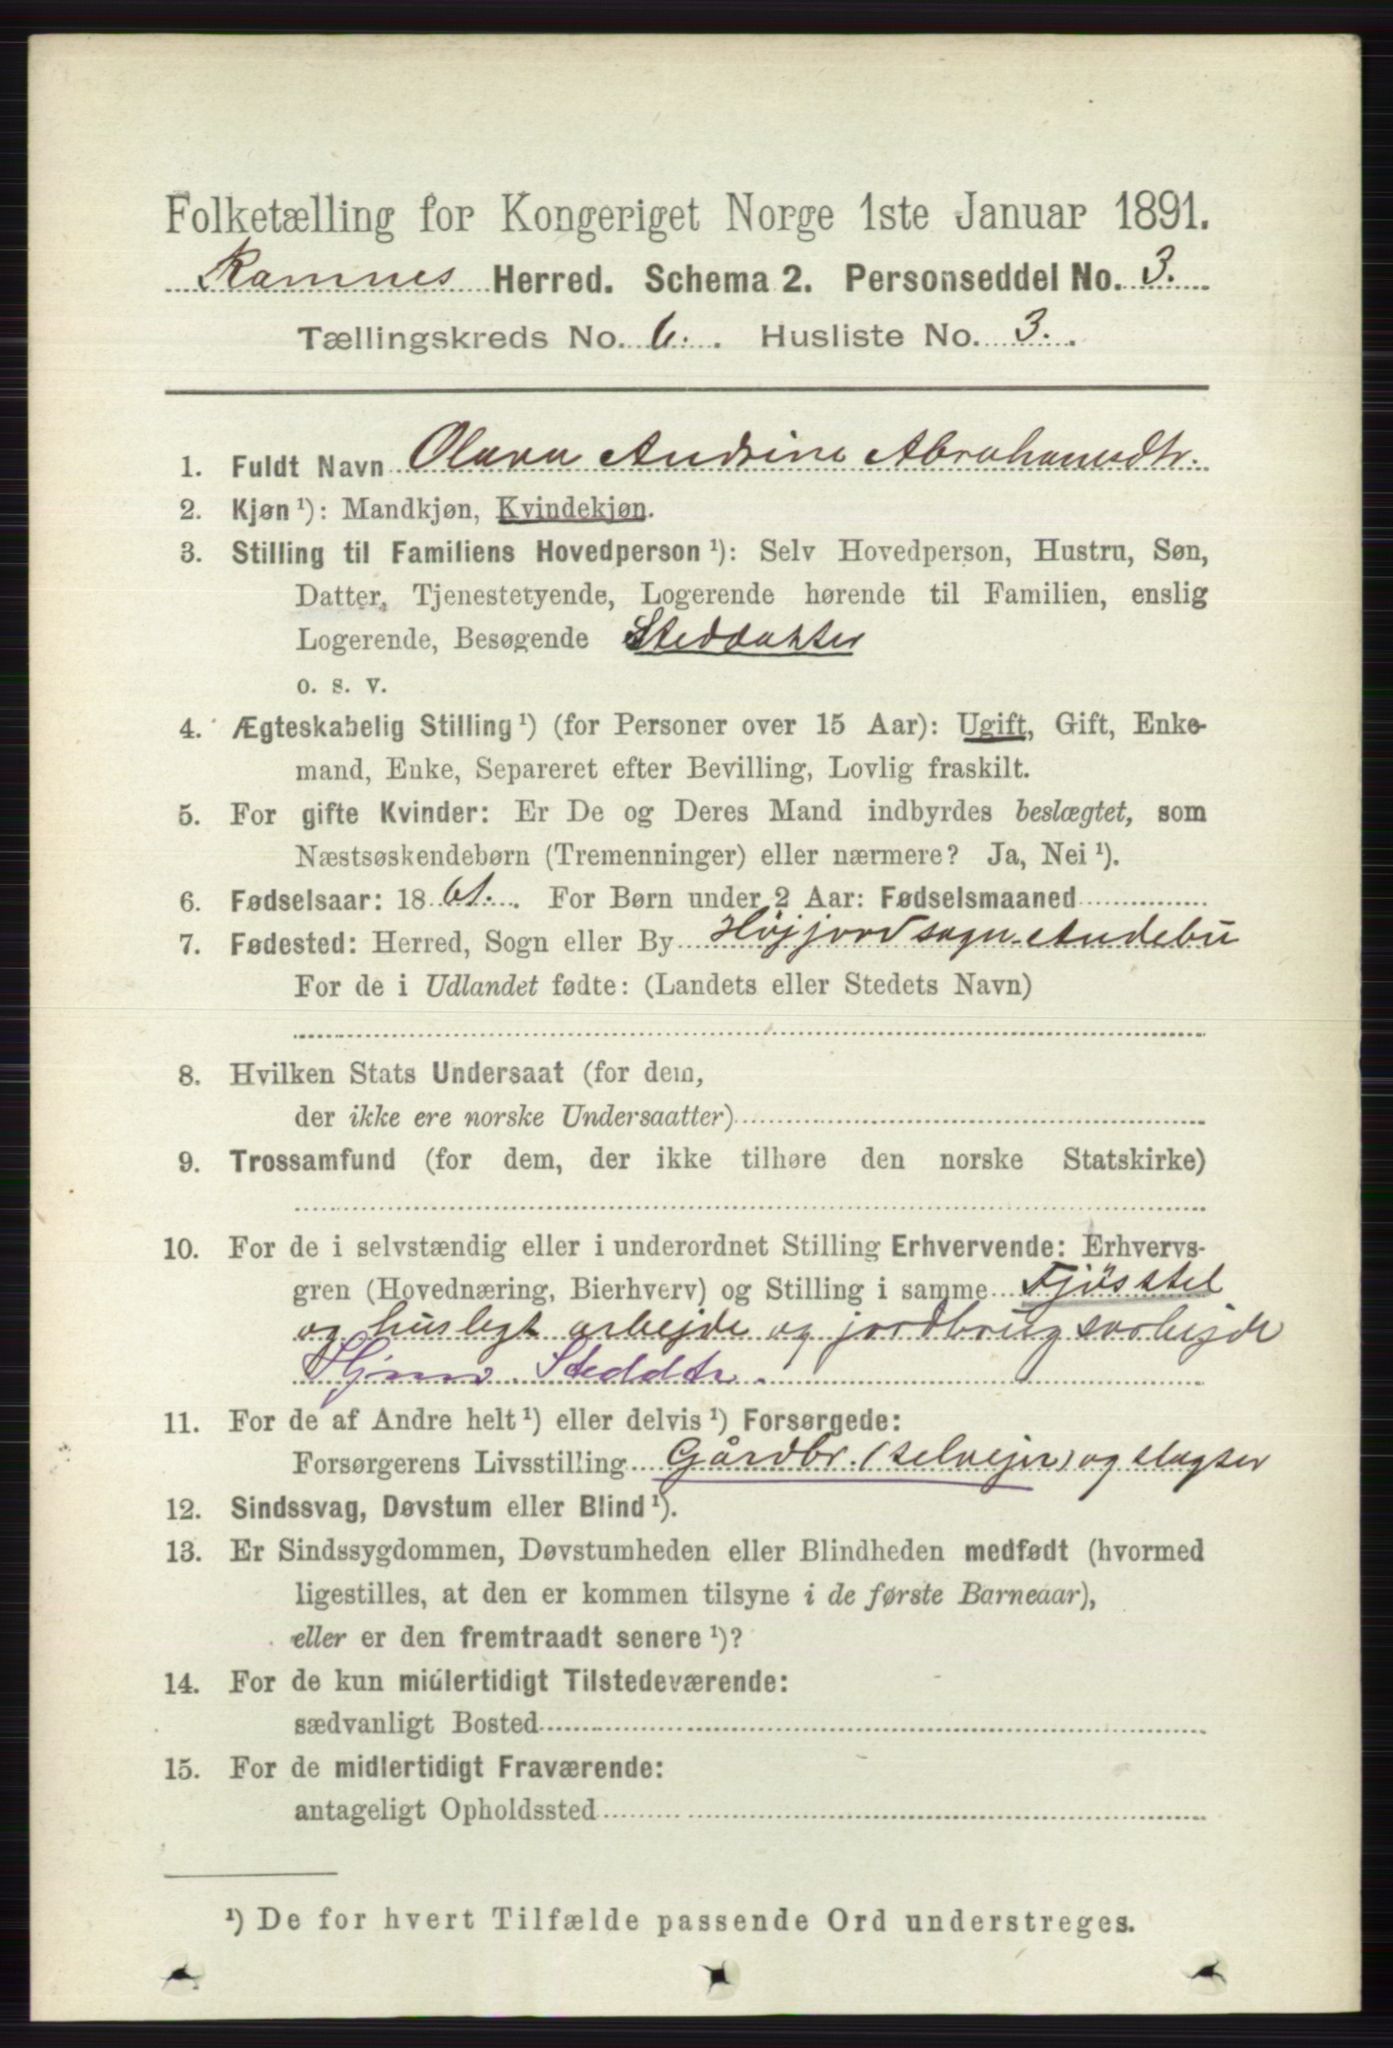 Folketælling for Kongeriget Norge 1ste Januar 1891.
Ramnes Herred. Schema 2. Personseddel No. 3.
Tællingskreds No. 6. Husliste No. 3.
1. Fuldt Navn Olava Andrine Abrahamsdtr.
2. Kjøn ¹): Mandkjøn, Kvindekjøn.
3. Stilling til Familiens Hovedperson ¹): Selv Hovedperson, Hustru, Søn,
Datter, Tjenestetyende, Logerende hørende til Familien, enslig
Logerende, Besøgende Steddatter
o. s. v.
4. Ægteskabelig Stilling ¹) (for Personer over 15 Aar): Ugift, Gift, Enke-
mand, Enke, Separeret efter Bevilling, Lovlig fraskilt.
5. For gifte Kvinder: Er De og Deres Mand indbyrdes beslægtet, som
Næstsøskendebørn (Tremenninger) eller nærmere? Ja, Nei ¹).
6. Fødselsaar: 1861. For Børn under 2 Aar: Fødselsmaaned
7. Fødested: Herred, Sogn eller By Høijjord sogn Andebu
For de i Udlandet fødte: (Landets eller Stedets Navn)
8. Hvilken Stats Undersaat (for dem,
der ikke ere norske Undersaatter)
9. Trossamfund (for dem, der ikke tilhøre den norske Statskirke)
10. For de i selvstændig eller i underordnet Stilling Erhvervende: Erhvervs-
gren (Hovednæring, Bierhverv) og Stilling i samme Fjøsstel
og husligt arbejde og jordbrugsarbejde
Hjmv. Steddtr.
11. For de af Andre helt ¹) eller delvis ¹) Forsørgede:
Forsørgerens Livsstilling Gårdbr. (selvejer) og slagter
12. Sindssvag, Døvstum eller Blind ¹).
13. Er Sindssygdommen, Døvstumheden eller Blindheden medfødt (hvormed
ligestilles, at den er kommen tilsyne i de første Barneaar),
eller er den fremtraadt senere ¹)?
14. For de kun midlertidigt Tilstedeværende:
sædvanligt Bosted
15. For de midlertidigt Fraværende:
antageligt Opholdssted
¹) De for hvert Tilfælde passende Ord understreges.